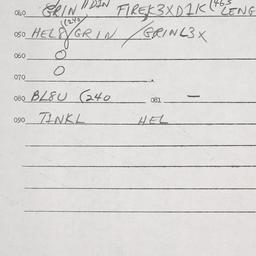 040 GRIN "DIN FIREK3XD1K (463 LENG
((243
050 HEL8/GRIN /GRINL3X
060 O
070 O
080 BL8U (240 081 —
090 TINKL HEL